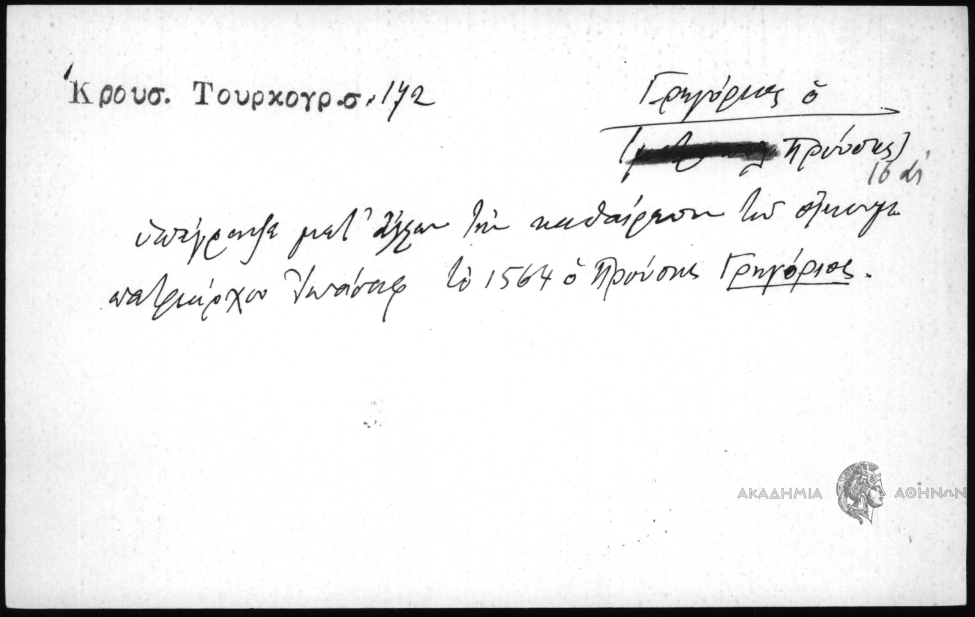 Κρουσ. Τουρκογρ.σ. 172
Γρηγόριος ὁ
Προύσης)
16 αἰ
ὑπέγραψε μετ' ἄλλων τὴν καθαίρεσιν τοῦ
πατριάρχου Ἰωάσαφ τὸ 1564 ὁ Προύσης Γρηγόριος.
ΑΚΑΔΗΜΙΑ ΑΘΗΝΩΝ